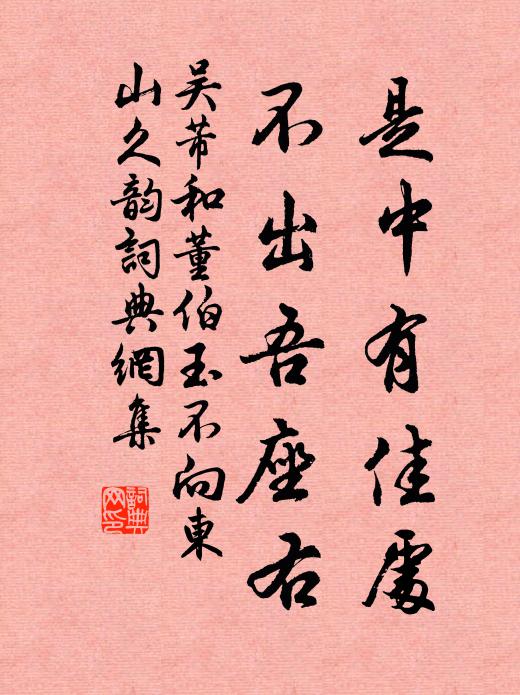 是中有佳處
不出吾座右
吴芾和董伯玉不向東
山久韵詞典網集
詞典
网印